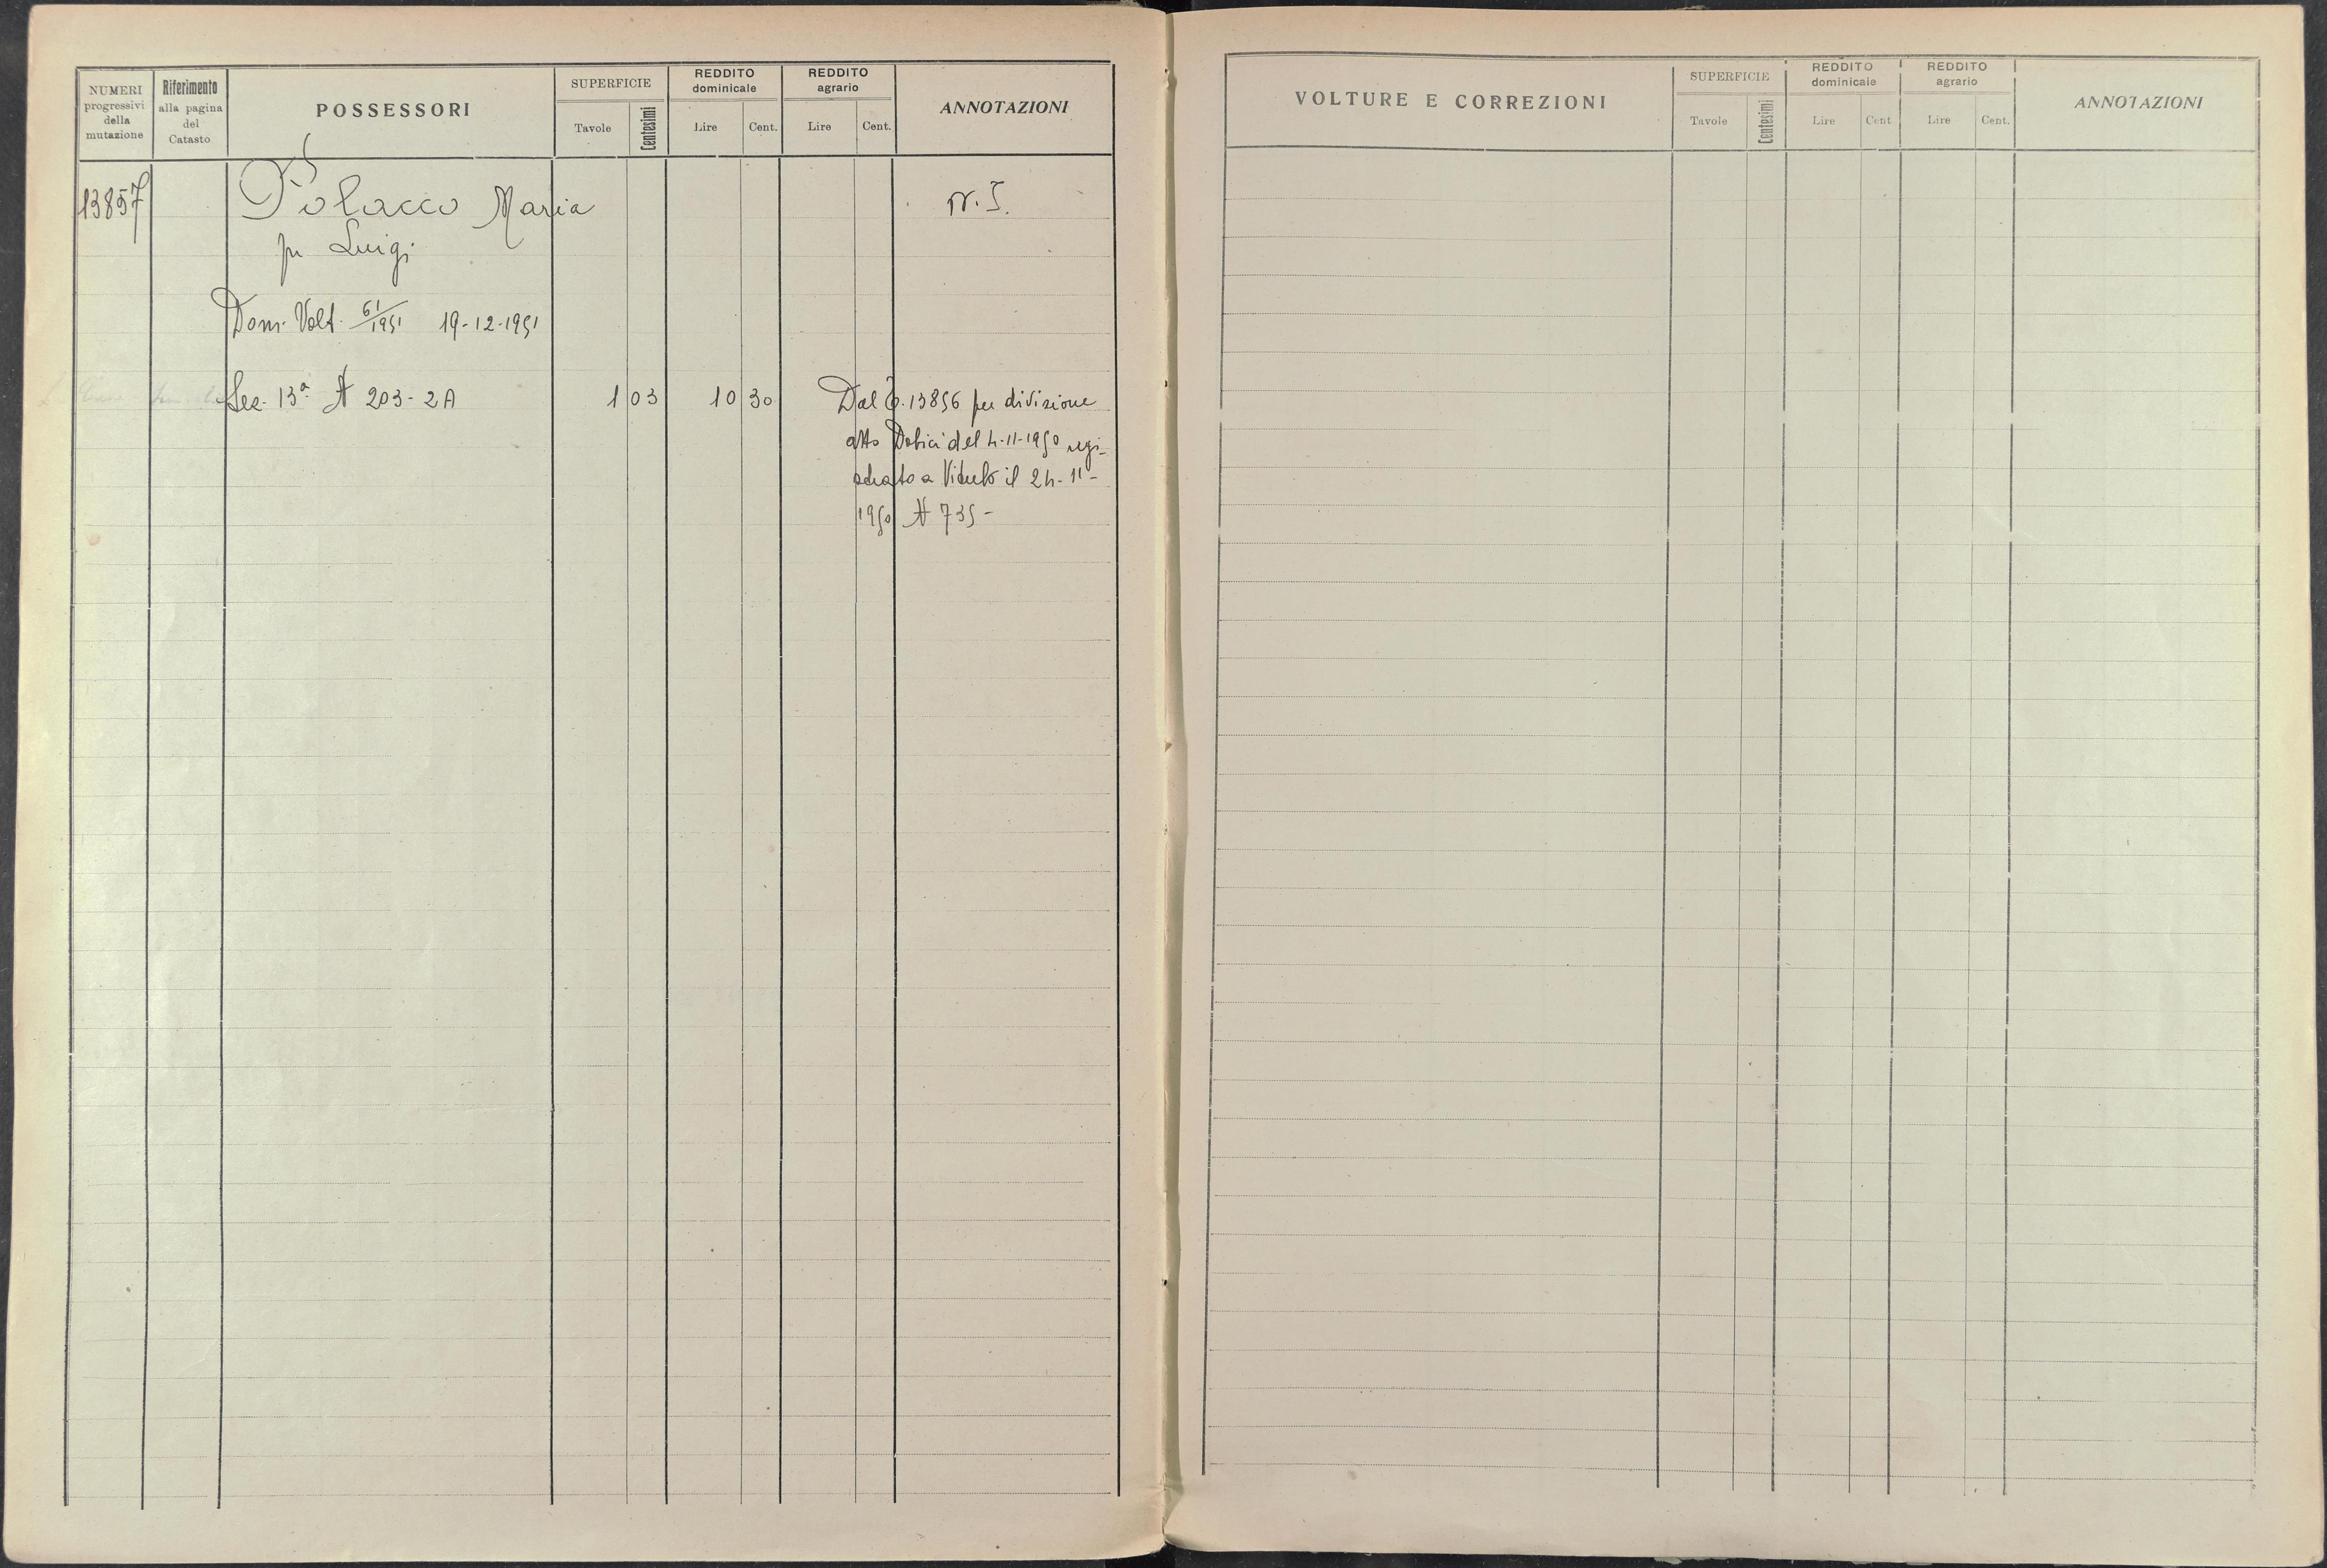 NUMERI progressivi della mutazione
Riferimento alla pagina del Catasto
POSSESSORI
SUPERFICIE
Tavole
Centesimi
REDDITO dominicale
Lire
Cent.
REDDITO agrario
Lire
Cent.
ANNOTAZIONI
13857
Polacco Maria
N.I.
fu Luigi
Dom. Volt. 61/1951 19-12-1951
Sez. 13ª N 203-2A
1 03
10 30
Dal 13856 per divisione
atto del 4-11-1950 regi-
strato a il 24-11-
1950 N 735-
VOLTURE E CORREZIONI
SUPERFICIE
Tavole
Centesimi
REDDITO dominicale
Lire
Cent
REDDITO agrario
Lire
Cent.
ANNOTAZIONI